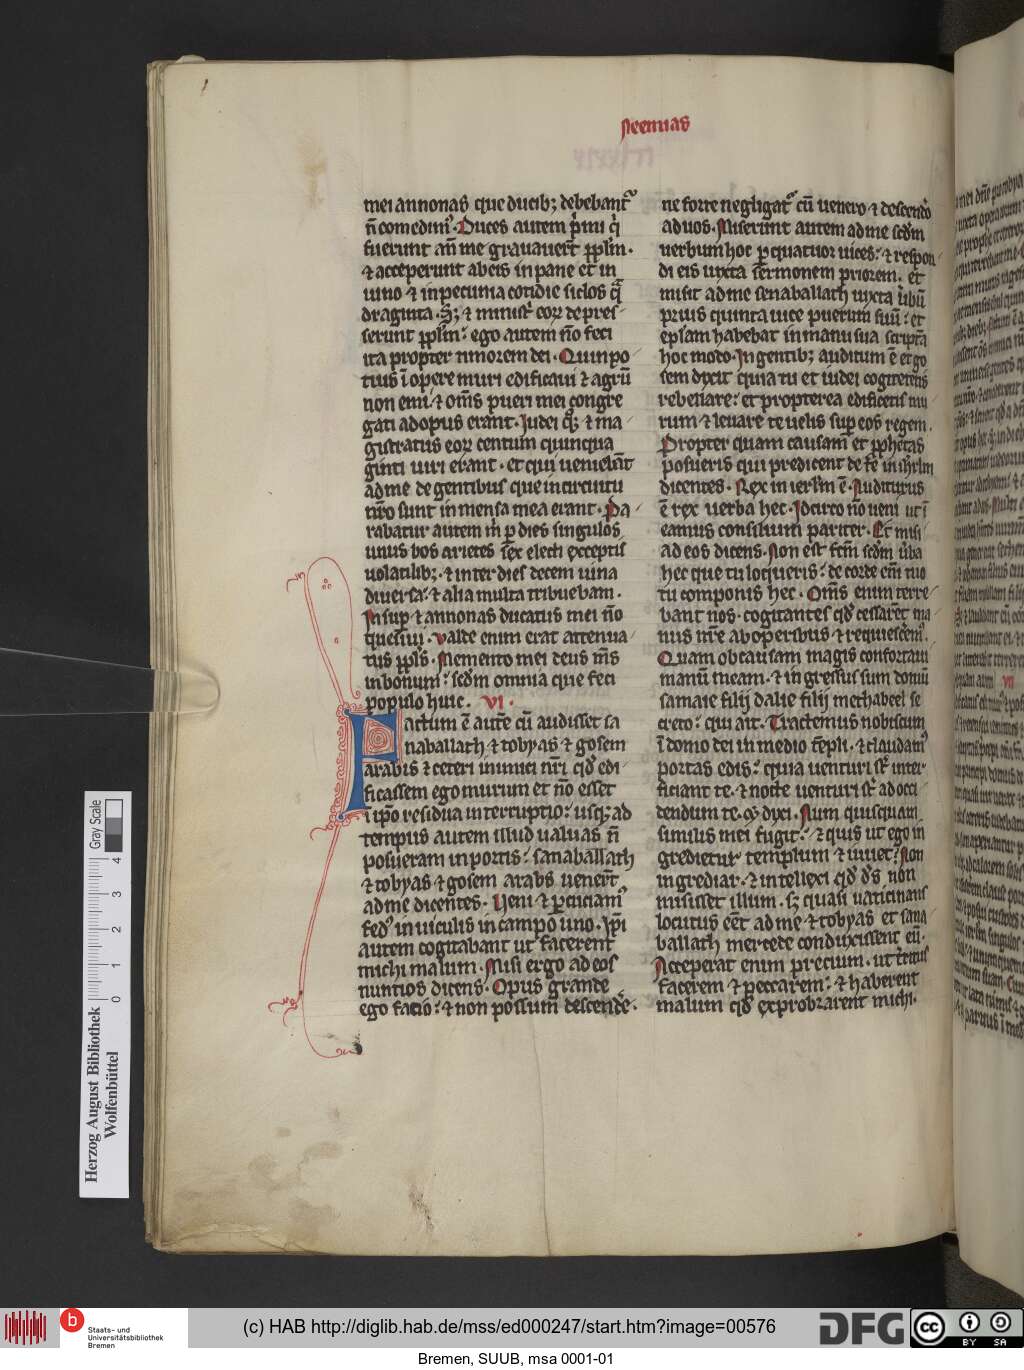 Neemias
mei annonas que ducib; debebant᷑
n̄ comedim᷒. Duces autem p̄mi q̇
fuerunt an̄ me grauauert̄ ppl̄m.
⁊ acceperunt ab eis in pane et in
uino ⁊ in pecunia cotidie siclos q̄
draginta. S; ⁊ minist̄ eoꝝ depres-
serunt ppl̄m: ego autem n̄o feci
ita propter timorem dei. Quin po
tius ī opere muri edificaui ⁊ agrū
non emi: ⁊ om̄s pueri mei congre
gati ad opus erant. Iudei q; ⁊ ma
gistratus eoꝝ centum quinqua
ginti uiri erant. et qui ueniebāt
ad me de gentibus que in circuitu
nr̄o sunt in mensa mea erant. Pa
rabatur autem m̄ ꝑ dies singulos
unus bos arietes sex electi exceptis
uolatilib;. ⁊ inter dies decem uina
diuersa: ⁊ alia multa tribuebam.
Insup ⁊ annonas ducatus mei n̄o
quesiui. valde enim erat attenua
tus ppl̄s. Memento mei deus m̄s
in bonum: sed̄m omnia que feci
populo huic. VI.
Factum ē aut̄e cū audisset sa
naballath ⁊ tobyas ⁊ gosem
arabis ⁊ ceteri inimici nr̄i q̄d edi
ficassem ego murum et n̄o esset
ī ip̄o residua interruptio: usq; ad
tempus autem illud ualuas n̄
posueram in portis: sanaballath
⁊ tobyas ⁊ gosem arabs uenert̄
ad me dicentes. Ueni ⁊ ꝑcuciam᷒
fed᷒ in uiculis in campo uno. Ip̄i
autem cogitabant ut facerent
michi malum. Misi ergo ad eos
nuntios dicens. Opus grande
ego facio: ⁊ non possum descende᷑.
ne forte negligat᷑ cū uenero ⁊ descendo᷑
ad uos. Miserunt autem ad me sed̄m
uerbum hoc ꝑ quatuor uices: ⁊ respon
di eis iuxta sermonem priorem. et
misit ad me senaballath iuxta ūbū
prius quinta uice puerum suū: et
epl̄am habebat in manu sua scriptā
hoc modo. In gentib; auditum ē et go
sem dyxit quia tu et iudei cogitetis
rebellare: et propterea edificetis mu
rum ⁊ leuare te uelis suꝑ eos regem.
Propter quam causam et pphetas
posueris qui predicent de te in ihrl̄m
dicentes. Rex in ierl̄m ē. Auditurus
ē rex uerba hec. Idcirco n̄o ueni ut ī
eamus consilium pariter. Et misi
ad eos dicens. Non est fcm̄ sed̄m ūba
hec que tu loqueris: de corde eni̅ tuo
tu componis hec. Om̄s enim terre
bant nos. cogitantes q̄d cessaret̄ ma
nus nr̄e ab operibus ⁊ requiescem᷒.
Quam ob causam magis confortaui
manū meam. ⁊ ingressus sum domū
samaie filij dalie filij methabeel se
creto: qui ait. Tractemus nobiscum
ī domo dei in medio te̅pli. ⁊ claudam᷒
portas edis: quia uenturi st̄ inter
ficiant te. ⁊ nocte uenturi st̄ ad occi
dendum te. et dyxi. Num quisquam
similis mei fugit: ⁊ quis ut ego in
gredietur templum ⁊ uiuet: Non
ingrediar. ⁊ intellexi q̄d d̄s non
misisset illum. s; quasi uaticinans
locutus eēt ad me ⁊ tobyas et sana
ballath mercede conduxissent eū.
Acceperat enim precium. ut t̄ritus
facerem ⁊ peccarem: ⁊ haberent
malum q̄d exprobrarent michi.
VII
Herzog August Bibliothek
Wolfenbüttel
Gray Scale
0 1 2 3 4
b
Staats- und
Universitätsbibliothek
Bremen
(c) HAB http://diglib.hab.de/mss/ed000247/start.htm?image=00576
DFG
cc
BY SA
Bremen, SUUB, msa 0001-01